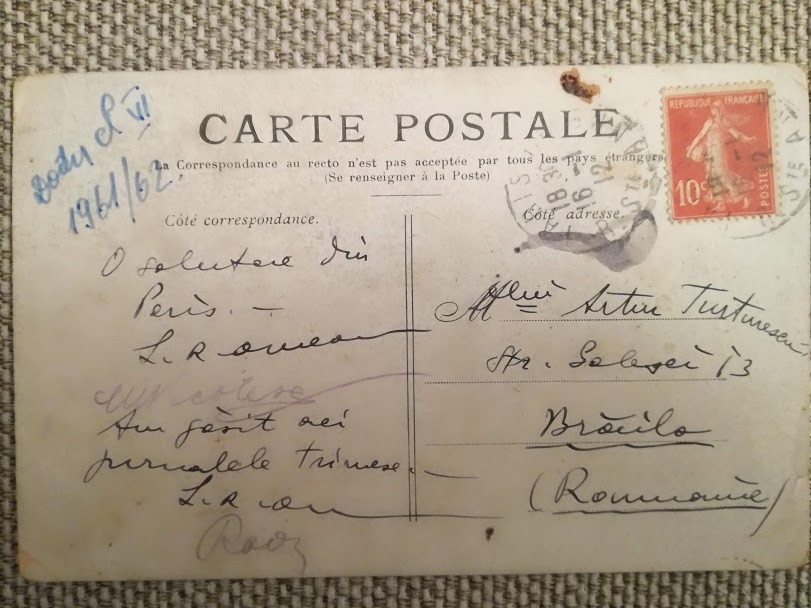 CARTE POSTALE
La Correspondance au recto n'est pas acceptée par tous les pays étrangers
(Se renseigner à la Poste)
VI
1961/62.
Côté correspondance.
O salutare din
Paris. -
Am găsit aci
jurnalele trimese. -
Côté adresse.
Artur Turturescu
Str. Galaţi 13
Brăila
(Roumanie)
REPUBLIQUE FRANÇAISE
10c
POSTES
18 30
16 -1
12